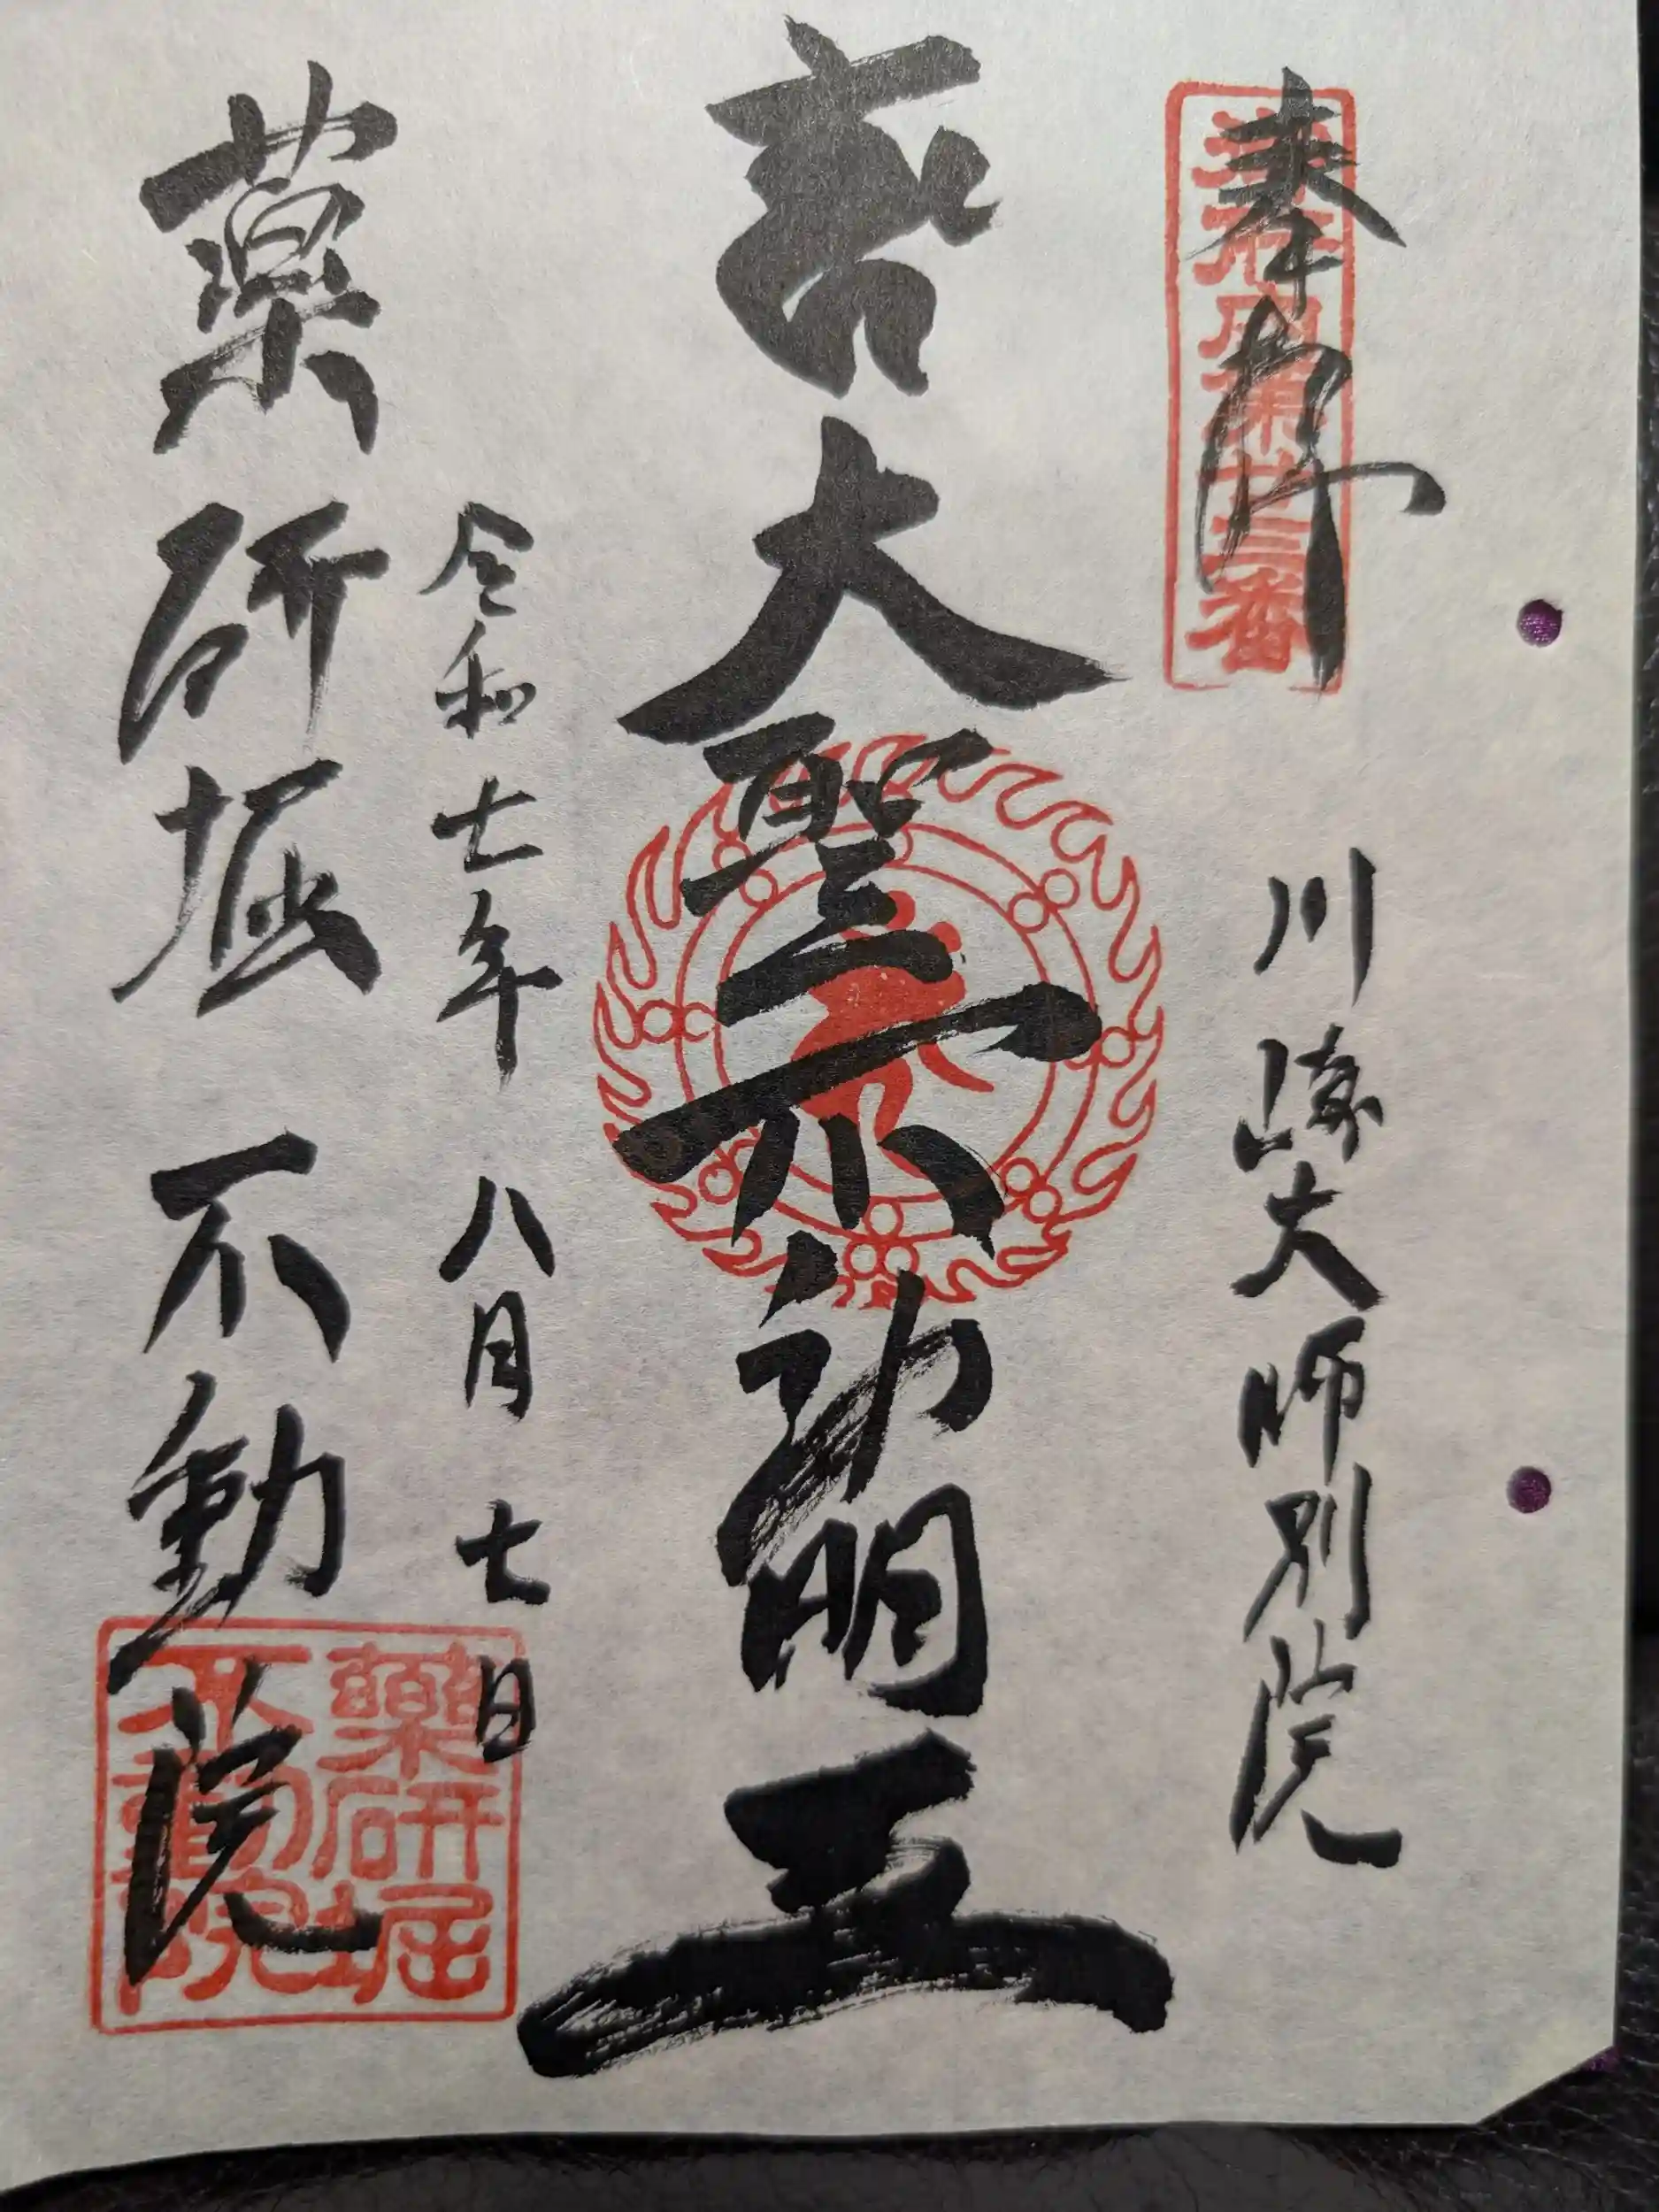 奉拝
御府内第廿三番
川崎大師別院
大聖不動明王
令和七年八月七日
薬研堀不動院
藥研堀
不動院